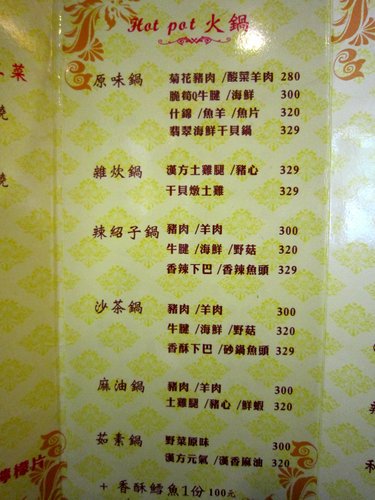 Hot pot 火鍋
原味鍋 菊花豬肉/酸菜羊肉 280
脆筍Q牛腱/海鮮 300
什錦/魚羊/魚片 320
翡翠海鮮干貝鍋 329
雜炊鍋 漢方土雞腿/豬心 329
干貝燉土雞 329
辣紹子鍋 豬肉/羊肉 300
牛腱/海鮮/野菇 320
香辣下巴/香辣魚頭 329
沙茶鍋 豬肉/羊肉 300
牛腱/海鮮/野菇 320
香酥下巴/砂鍋魚頭 329
麻油鍋 豬肉/羊肉 300
土雞腿/豬心/鮮蝦 320
茹素鍋 野菜原味 300
漢方元氣/漢香麻油 320
+ 香酥鱈魚1份 100元
菜
燒
檸檬片